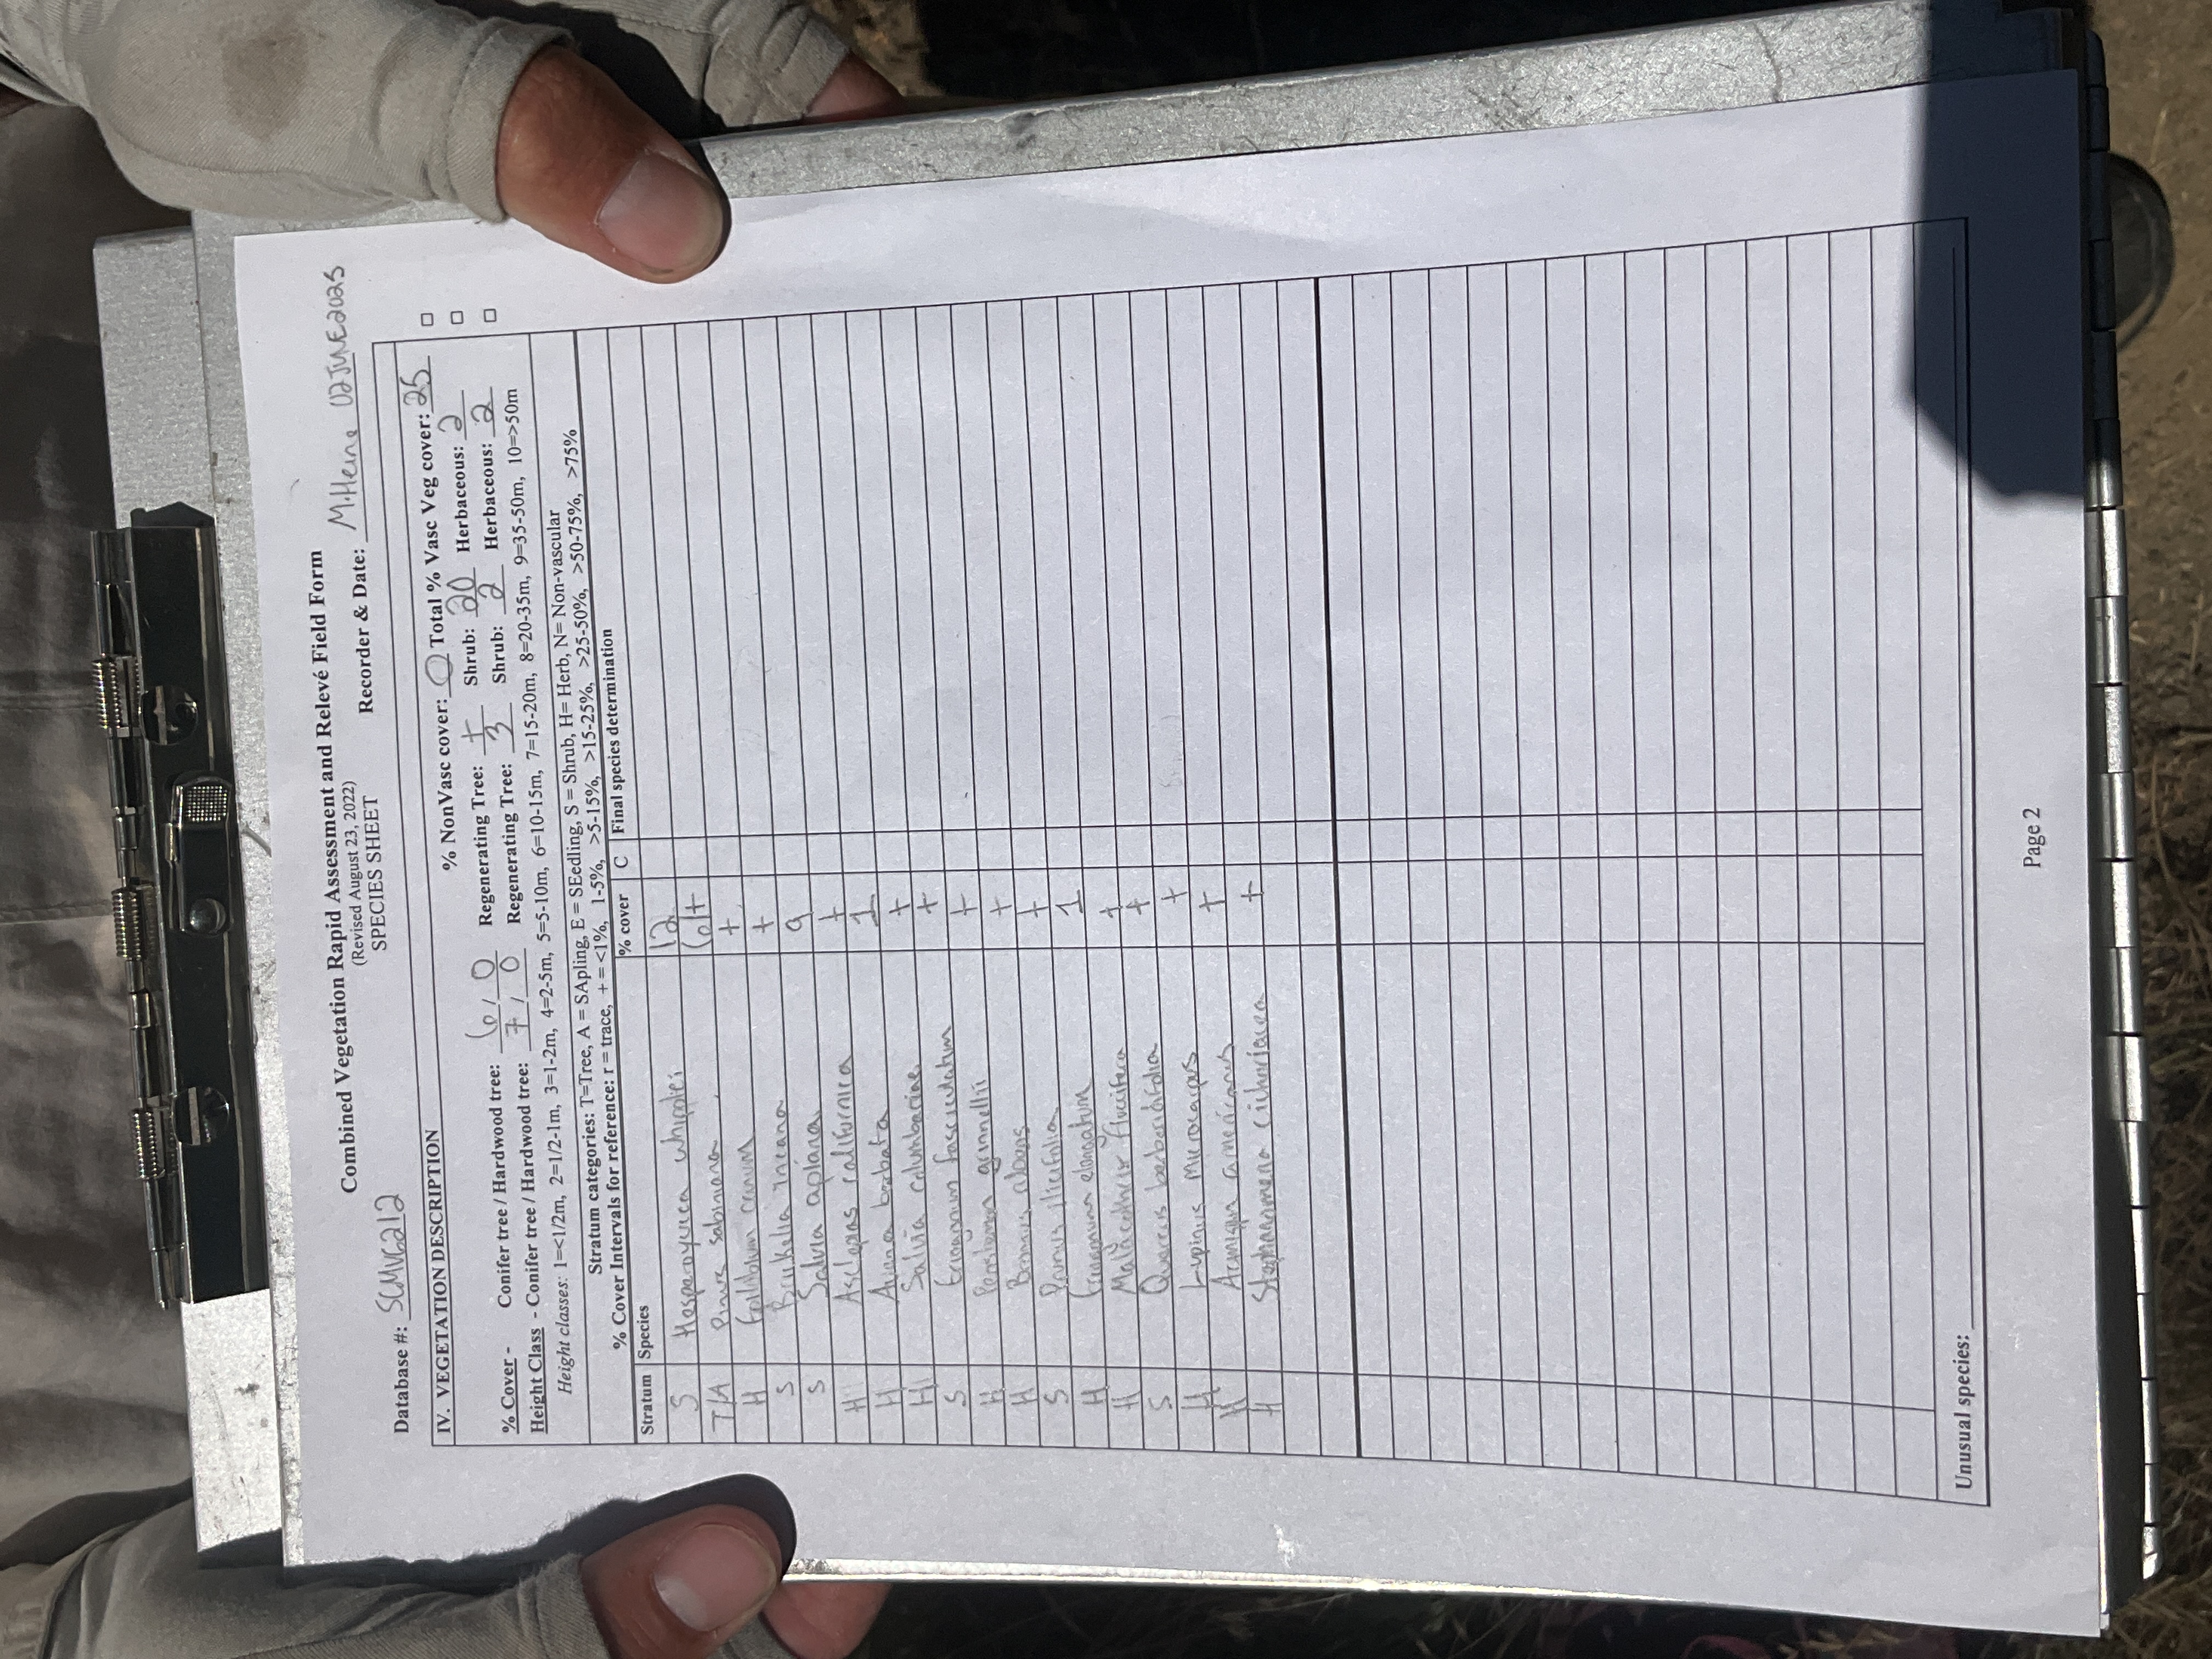 Combined Vegetation Rapid Assessment and Relevé Field Form
(Revised August 23, 2022)
SPECIES SHEET
Database #: SCMVG212 Recorder & Date: M.Heine 02JUNE2025
IV. VEGETATION DESCRIPTION
% NonVasc cover: 0 Total % Vasc Veg cover: 25
% Cover - Conifer tree / Hardwood tree: 6 / 0 Regenerating Tree: + Shrub: 20 Herbaceous: 2
Height Class - Conifer tree / Hardwood tree: 7 / 0 Regenerating Tree: 3 Shrub: 2 Herbaceous: 2
Height classes: 1=<1/2m, 2=1/2-1m, 3=1-2m, 4=2-5m, 5=5-10m, 6=10-15m, 7=15-20m, 8=20-35m, 9=35-50m, 10=>50m
Stratum categories: T=Tree, A = SApling, E = SEedling, S = Shrub, H= Herb, N= Non-vascular
% Cover Intervals for reference: r = trace, + = <1%, 1-5%, >5-15%, >15-25%, >25-50%, >50-75%, >75%
Stratum Species % cover C Final species determination
S Hesperoyucca whipplei 12
T/A Pinus sabiniana 6/+
H +
S Brickellia incana +
S Salvia apiana 9
H Asclepias californica +
H Avena barbata 1
H Salvia columbariae +
S Eriogonum fasciculatum +
H Penstemon grinnellii +
H Bromus +
S Prunus ilicifolia +
H Eriogonum elongatum 1
H Malacothrix +
S Quercus berberidifolia +
H Lupinus microcarpus +
H Acmispon americanus +
H Stephanomeria +
Unusual species:
Page 2